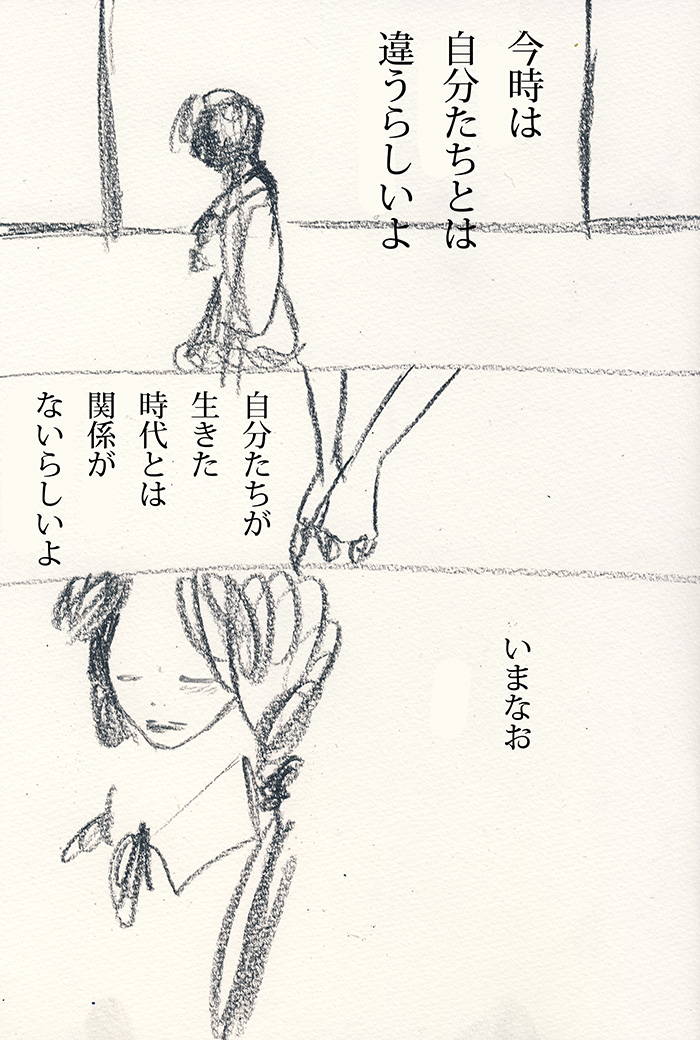 今時は
自分たちとは
違うらしいよ
自分たちが
生きた
時代とは
関係が
ないらしいよ
いまなお